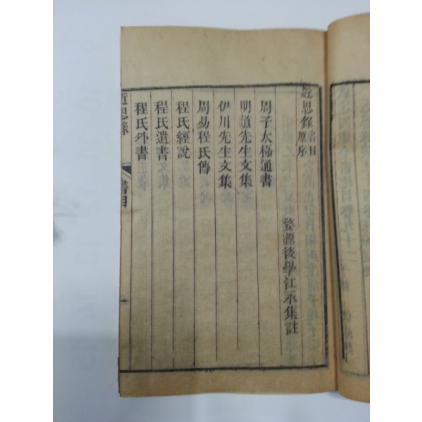 近思錄書目原序
婺源後學江永集註
周子太極通書
明道先生文集
伊川先生文集
周易程氏傳
程氏經說
程氏遺書
程氏外書
近思錄
書目